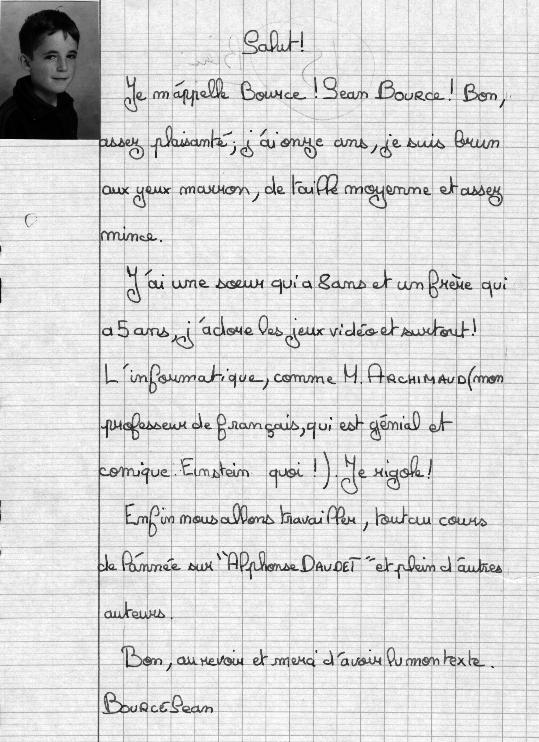 Salut!
Je m'áppelle Bource ! Sean BOURCE! Bon,
assez plaisanté, j'ai onze ans, je suis brun
aux yeux marron, de taille moyenne et assez
mince.
J'ai une sœur qui a 8 ans et un frère qui
a 5 ans, j'adore les jeux vidéo et surtout!
L'informatique, comme M. ARCHIMAUD (mon
professeur de français, qui est génial et
comique. Einstein quoi !). Je rigole!
Enfin nous allons travailler, tout au cours
de l'année sur "Alphonse DAUDET" et plein d'autres
auteurs.
Bon, au revoir et merci d'avoir lu mon texte.
BOURCE Sean